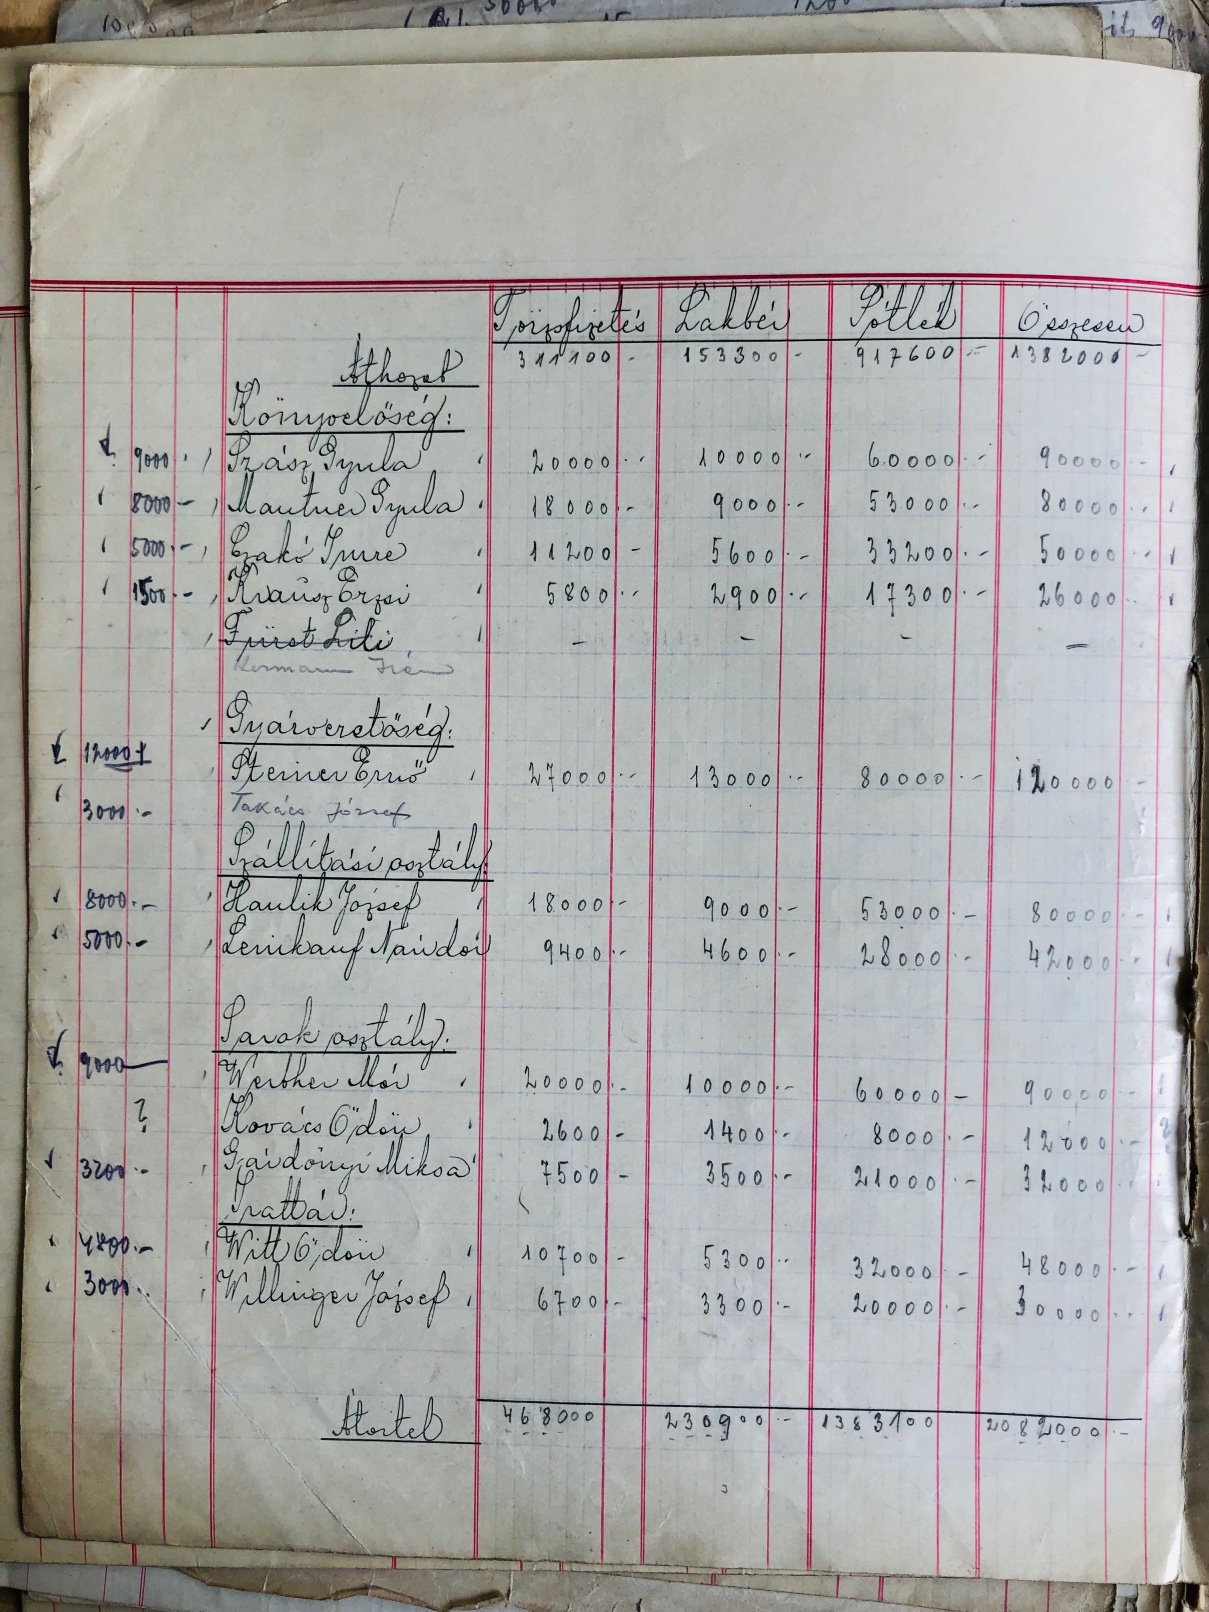 Törzsfizetés Lakbér Pótlék Összesen
Áthozat 311100 - 153300 - 917600 - 1382000 -
Könyvelőség:
9000 Szász Gyula 20000 - 10000 - 60000 - 90000 -
8000 - Mautner Gyula 18000 - 9000 - 53000 - 80000 -
5000 - Czakó Imre 11200 - 5600 - 33200 - 50000 -
1500 - Krausz Erzsi 5800 - 2900 - 17300 - 26000 -
Fürst Lili - - - -
Hermann Irén
Gyárvezetőség:
12000 Steiner Ernő 27000 - 13000 - 80000 - 120000 -
3000 - Takács József
Szállítási osztály:
8000 - Haulik József 18000 - 9000 - 53000 - 80000 -
5000 - Lemkauf Nándor 9400 - 4600 - 28000 - 42000 -
Sarok osztály:
9000 Werther Mór 20000 - 10000 - 60000 - 90000 -
? Kovács Ödön 2600 - 1400 - 8000 - 12000 -
3200 - Gárdonyi Miksa 7500 - 3500 - 21000 - 32000
Irattár:
4800 - Witt Ödön 10700 - 5300 - 32000 - 48000 -
3000 Willinger József 6700 - 3300 - 20000 - 30000
Átvitel 468000 230900 - 1383100 2082000 -